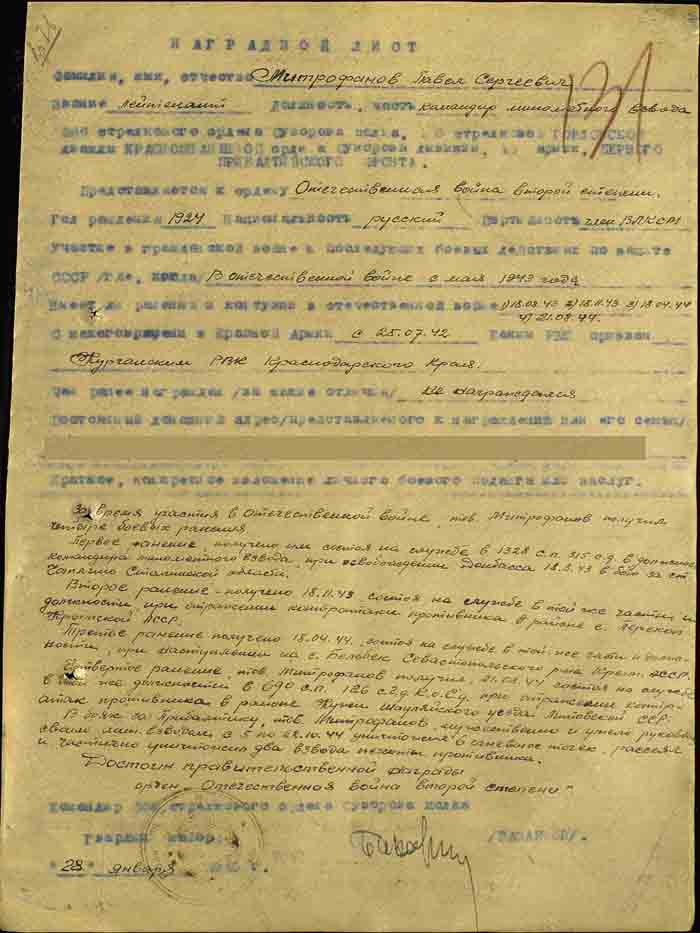 НАГРАДНОЙ ЛИСТ
Фамилия, имя, отчество Митрофанов Павел Сергеевич
Звание лейтенант Должность, часть командир миномётного взвода
стрелкового ордена Суворова полка, стрелковой ГОРЛОВСКОЙ
дважды КРАСНОЗНАМЕННОЙ ордена Суворова дивизии, армии, ПЕРВОГО
ПРИБАЛТИЙСКОГО ФРОНТА.
Представляется к ордену Отечественная война второй степени.
Год рождения 1924 Национальность русский Партийность член ВЛКСМ
Участие в гражданской войне и последующих боевых действиях по защите
СССР /где, когда/ В отечественной войне с мая 1943 года
Имеет ли ранения и контузии в отечественной войне 1) 18.08.43 2) 18.11.43 3) 18.04.44
4) 21.08.44.
С какого времени в Красной Армии с 25.07.42 Каким РВК призван
Курганским РВК Краснодарского Края.
Чем ранее награжден /за какие отличия/ Не награждался
Постоянный домашний адрес/представляемого к награждению или его семьи/
Краткое, конкретное изложение личного боевого подвига или заслуг.
За время участия в Отечественной войне, тов. Митрофанов получил
четыре боевых ранения.
Первое ранение получено им состоя на службе в 1328 с.п. 315 с.д. в должности
командира миномётного взвода, при освобождении Донбасса 18.8.43 в бою за ст.
Сталинской области.
Второе ранение - получено 18.11.43 состоя на службе в той же части и
должности, при отражении контратаки противника в районе с. Перекоп
Крымской АССР.
Третье ранение получено 18.04.44. состоя на службе в той же части и долж-
ности, при наступлении на с. Бельбек Севастопольского р-на Крым. АССР.
Четвертое ранение, тов. Митрофанов получил 21.08.44 состоя на службе
в той же должности в 690 с.п. 126 при отражении контр-
атак противника в районе Шауляйского уезда Литовской ССР.
В боях за Прибалтику, тов. Митрофанов, мужественно и умело руководя
своим мин. взводом с 5 по 28.10.44 уничтожил 6 огневых точек. рассеял
и частично уничтожил два взвода пехоты противника.
Достоин правительственной награды
орден „Отечественная война второй степени"
Командир стрелкового ордена Суворова полка
гвардии майор:
"28" января г.